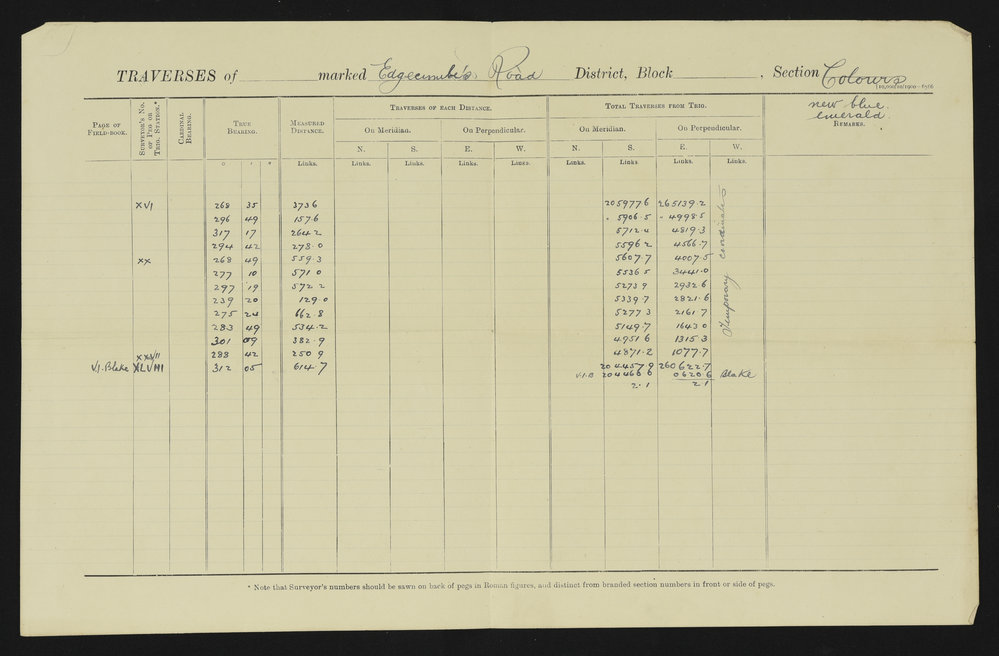 TRAVERSES of marked Edgecumbe's Road District, Block , Section Colours
[10,000/10/1900—6516
new blue.
emerald.
PAGE OF FIELD-BOOK. SURVEYOR'S NO. OF PEG OR TRIG. STATION.* CARDINAL BEARING. TRUE BEARING. MEASURED DISTANCE. TRAVERSES OF EACH DISTANCE. TOTAL TRAVERSES FROM TRIG. REMARKS.
On Meridian. On Perpendicular. On Meridian. On Perpendicular.
N. S. E. W. N. S. E. W.
° ' " Links. Links. Links. Links. Links. Links. Links. Links. Links.
XVI 268 35 373.6 205977.6 265139.2
296 49 157.6 " 5906.5 " 4998.5
317 17 264.2 5712.4 4819.3
294 42 278.0 5596.2 4566.7
XX 268 49 559.3 5607.7 4007.5
277 10 571.0 5536.5 3441.0
297 19 572.2 5273.9 2932.6
239 20 129.0 5339.7 2821.6
275 24 662.8 5277.3 2161.7
283 49 534.2 5149.7 1643.0
301 09 382.9 4951.6 1315.3
XXVII 288 42 250.9 4871.2 1077.7
V.I. Blake XLVIII 312 05 614.7 204457.9 260622.7
V.I.B 204466.6 0620.6 Blake
2.1 2.1
Temporary coordinates
* Note that Surveyor's numbers should be sawn on back of pegs in Roman figures, and distinct from branded section numbers in front or side of pegs.